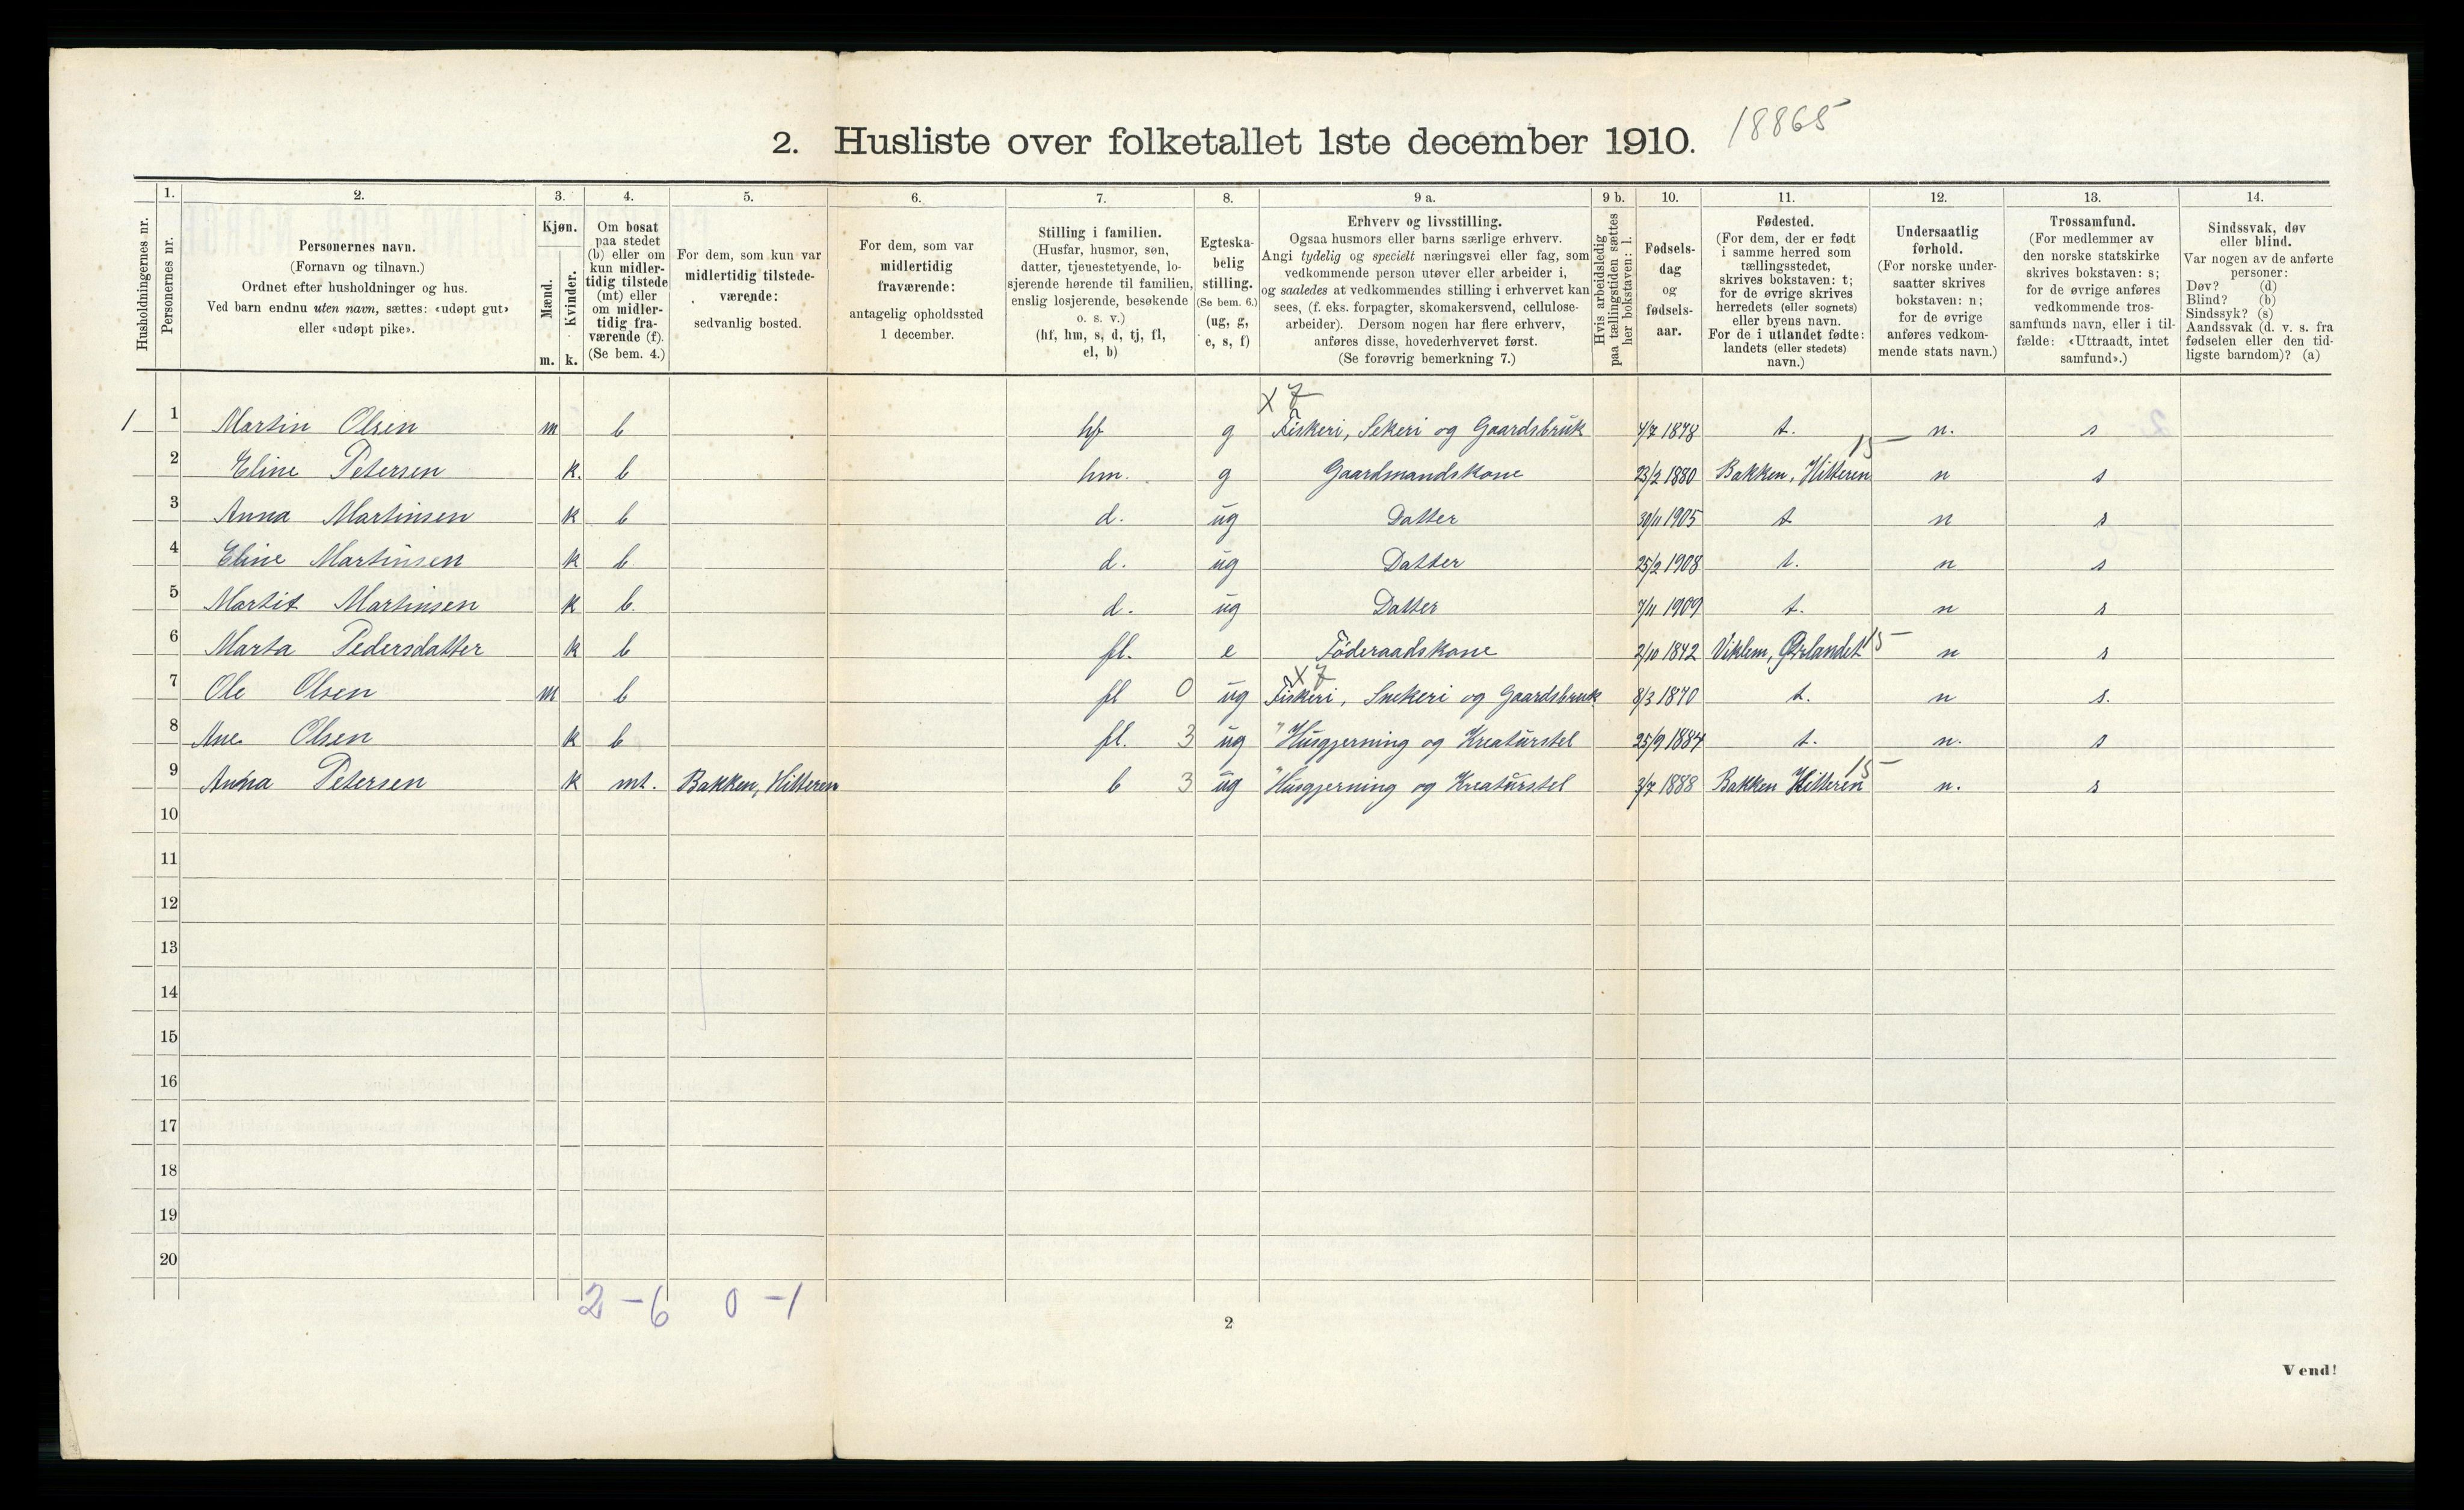 2. Husliste over folketallet 1ste december 1910. 18865
1. 2. 3. 4. 5. 6. 7. 8. 9 a. 9 b. 10. 11. 12. 13. 14.
Husholdningernes nr.
Personernes nr.
Personernes navn.
(Fornavn og tilnavn.)
Ordnet efter husholdninger og hus.
Ved barn endnu uten navn, sættes: «udøpt gut»
eller «udøpt pike».
Kjøn.
Mænd.
Kvinder.
m. k.
Om bosat
paa stedet
(b) eller om
kun midler-
tidig tilstede
(mt) eller
om midler-
tidig fra-
værende (f).
(Se bem. 4.)
For dem, som kun var
midlertidig tilstede-
værende:
sedvanlig bosted.
For dem, som var
midlertidig
fraværende:
antagelig opholdssted
1 december.
Stilling i familien.
(Husfar, husmor, søn,
datter, tjenestetyende, lo-
sjerende hørende til familien,
enslig losjerende, besøkende
o. s. v.)
(hf, hm, s, d, tj, fl,
el, b)
Egteska-
belig
stilling.
(Se bem. 6.)
(ug, g,
e, s, f)
Erhverv og livsstilling.
Ogsaa husmors eller barns særlige erhverv.
Angi tydelig og specielt næringsvei eller fag, som
vedkommende person utøver eller arbeider i,
og saaledes at vedkommendes stilling i erhvervet kan
sees, (f. eks. forpagter, skomakersvend, cellulose-
arbeider). Dersom nogen har flere erhverv,
anføres disse, hovederhvervet først.
(Se forøvrig bemerkning 7.)
Hvis arbeidsledig
paa tællingstiden sættes
her bokstaven: l.
Fødsels-
dag
og
fødsels-
aar.
Fødested.
(For dem, der er født
i samme herred som
tællingsstedet,
skrives bokstaven: t;
for de øvrige skrives
herredets (eller sognets)
eller byens navn.
For de i utlandet fødte:
landets (eller stedets)
navn.)
Undersaatlig
forhold.
(For norske under-
saatter skrives
bokstaven: n;
for de øvrige
anføres vedkom-
mende stats navn.)
Trossamfund.
(For medlemmer av
den norske statskirke
skrives bokstaven: s;
for de øvrige anføres
vedkommende tros-
samfunds navn, eller i til-
fælde: «Uttraadt, intet
samfund».)
Sindssvak, døv
eller blind.
Var nogen av de anførte
personer:
Døv? (d)
Blind? (b)
Sindssyk? (s)
Aandssvak (d. v. s. fra
fødselen eller den tid-
ligste barndom)? (a)
x 7
1 1 Martin Olsen m b hf g Fiskeri, Sekeri og Gaardsbruk 4/7 1878 t. n. s
2 Eline Petersen k. b hm. g Gaardmandskone 23/2 1880 Bakken, Hitteren 15 n s
3 Anna Martinsen k b d. ug Datter 30/11 1905 t n s
4 Eline Martinsen k b d. ug Datter 25/2 1908 t. n s
5 Martit Martinsen k b. d. ug Datter 7/11 1909 t. n s
6 Marta Pedersdatter k b fl. e Føderaadskone 2/10 1842 Viklem, Ørlandet 15 n s
x 7
7 Ole Olsen m b fl 0 ug Fiskeri, Snekeri og Gaardsbruk 8/3 1870 t. n s.
8 Ane Olsen k b fl. 3 ug "Husgjerning og Kreaturstel 25/9 1884 t. n. s
9 Anna Petersen k mt. Bakken, Hitteren b 3 ug "Husgjerning og Kreaturstel 3/7 1888 Bakken Hitteren 15 n. s
10
11
12
13
14
15
16
17
18
19
20
2 - 6 0 - 1
2
Vend!